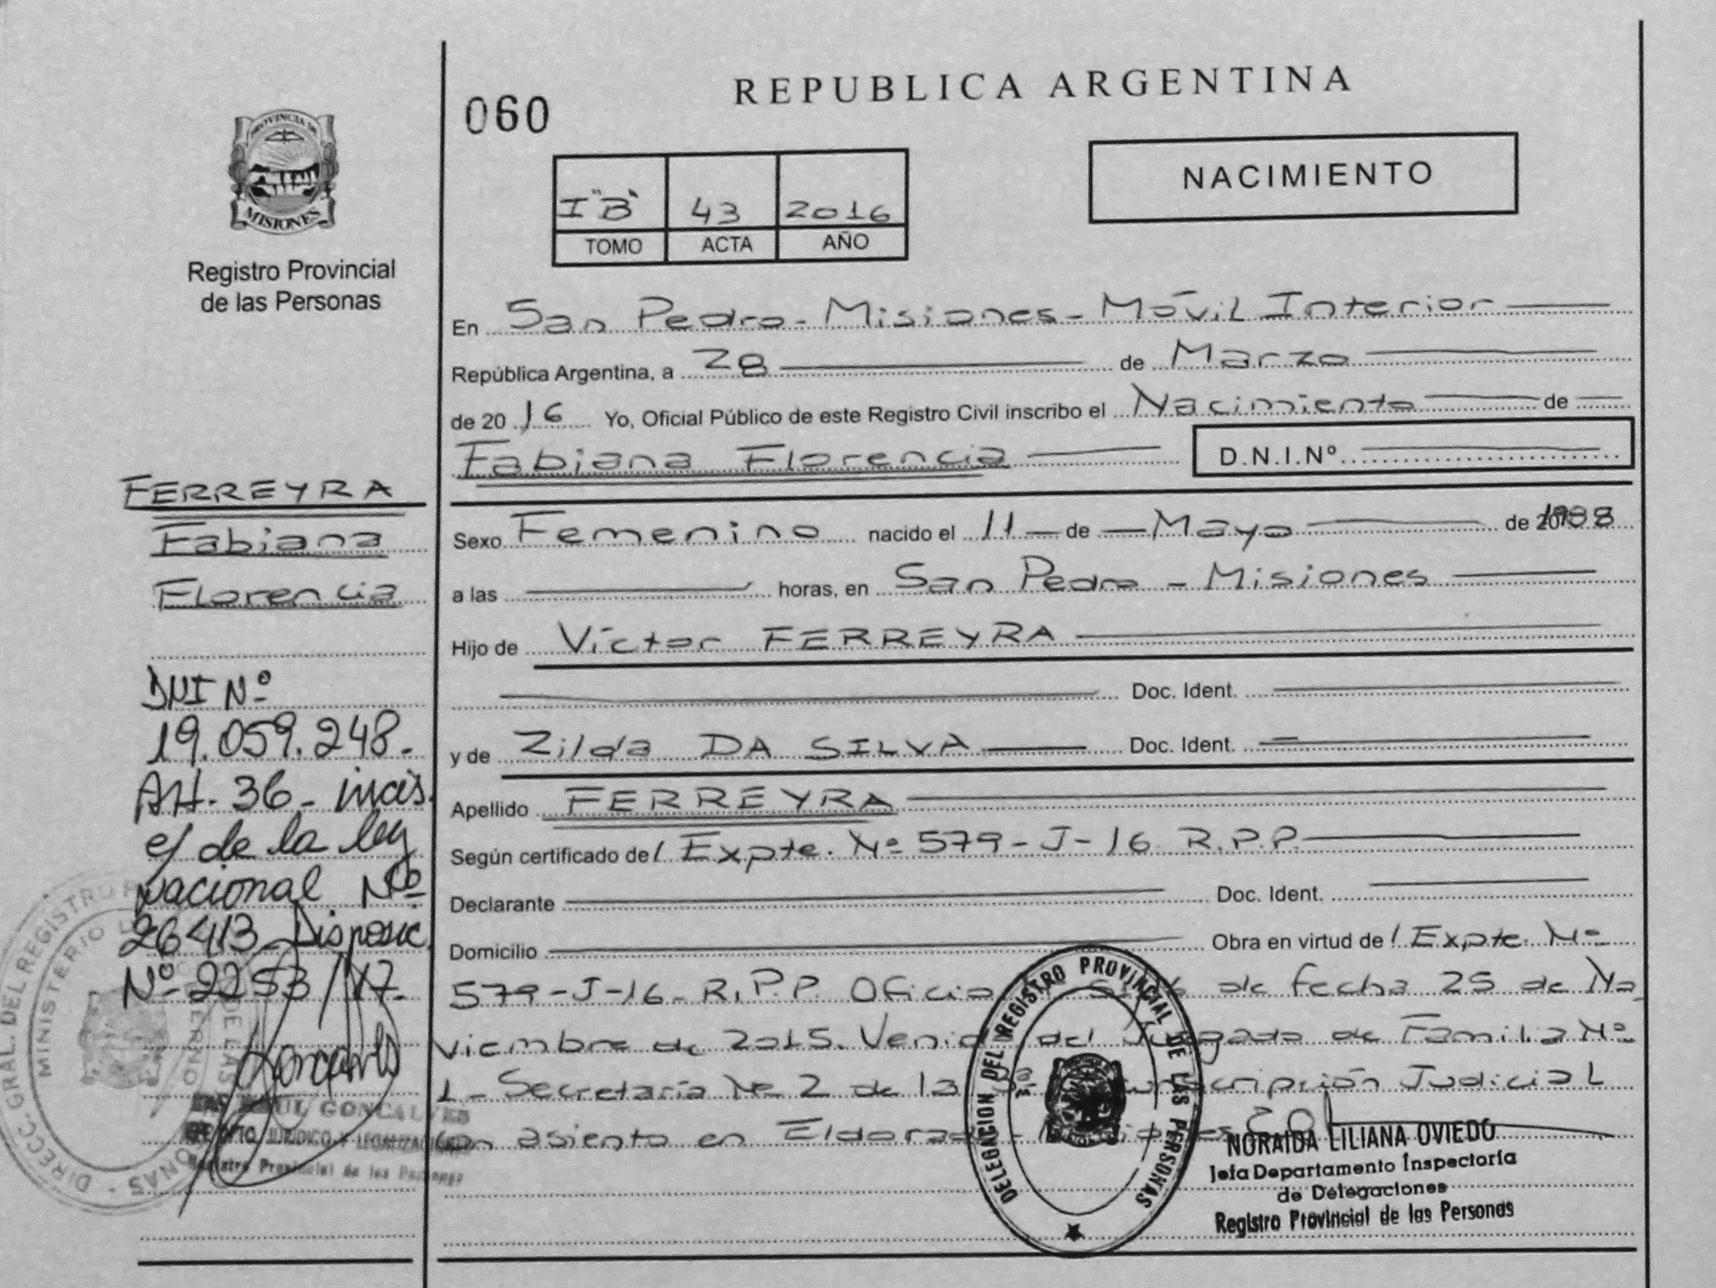 060
REPUBLICA ARGENTINA
NACIMIENTO
I "B" 43 2016
TOMO ACTA AÑO
PROVINCIA DE
MISIONES
Registro Provincial
de las Personas
En San Pedro - Misiones - Móvil Interior
República Argentina, a 28 de Marzo
de 2016 Yo, Oficial Público de este Registro Civil inscribo el Nacimiento de
Fabiana Florencia D.N.I.Nº
Sexo Femenino nacido el 11 de Mayo de 1988
a las horas, en San Pedro - Misiones
Hijo de Víctor FERREYRA
Doc. Ident.
y de Zilda DA SILVA Doc. Ident.
Apellido FERREYRA
Según certificado de / Expte. Nº 579-J-16 R.P.P.
Declarante Doc. Ident.
Domicilio Obra en virtud de / Expte. Nº
579-J-16- R.P.P. Oficio de fecha 25 de No
viembre de 2015. Venido del Juzgado de Familia Nº
1 - Secretaría Nº 2 de la Circunscripción Judicial
con asiento en Eldorado - Misiones
FERREYRA
Fabiana
Florencia
DNI Nº
19.059.248.
Art. 36 - incis.
e/ de la ley
Nacional Nº
26413 Disposic.
Nº 2253/17.
DIRECC. GRAL. DEL REGISTRO DE LAS PERSONAS
MINISTERIO DE GOBIERNO
RAUL GONCALVES
DPTO. JURIDICO Y LEGALIZACIONES
Registro Provincial de las Personas
DELEGACION DEL REGISTRO PROVINCIAL DE LAS PERSONAS
NORAIDA LILIANA OVIEDO
Jefa Departamento Inspectoría
de Delegaciones
Registro Provincial de las Personas